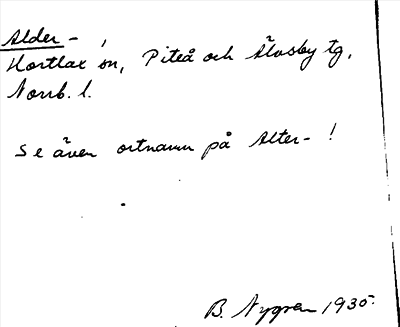 Alder-
Hortlax sn, Piteå och Älvsby tg,
Norrb. l.
Se även ortnamn på Alter-!
B. Nygren 1935.